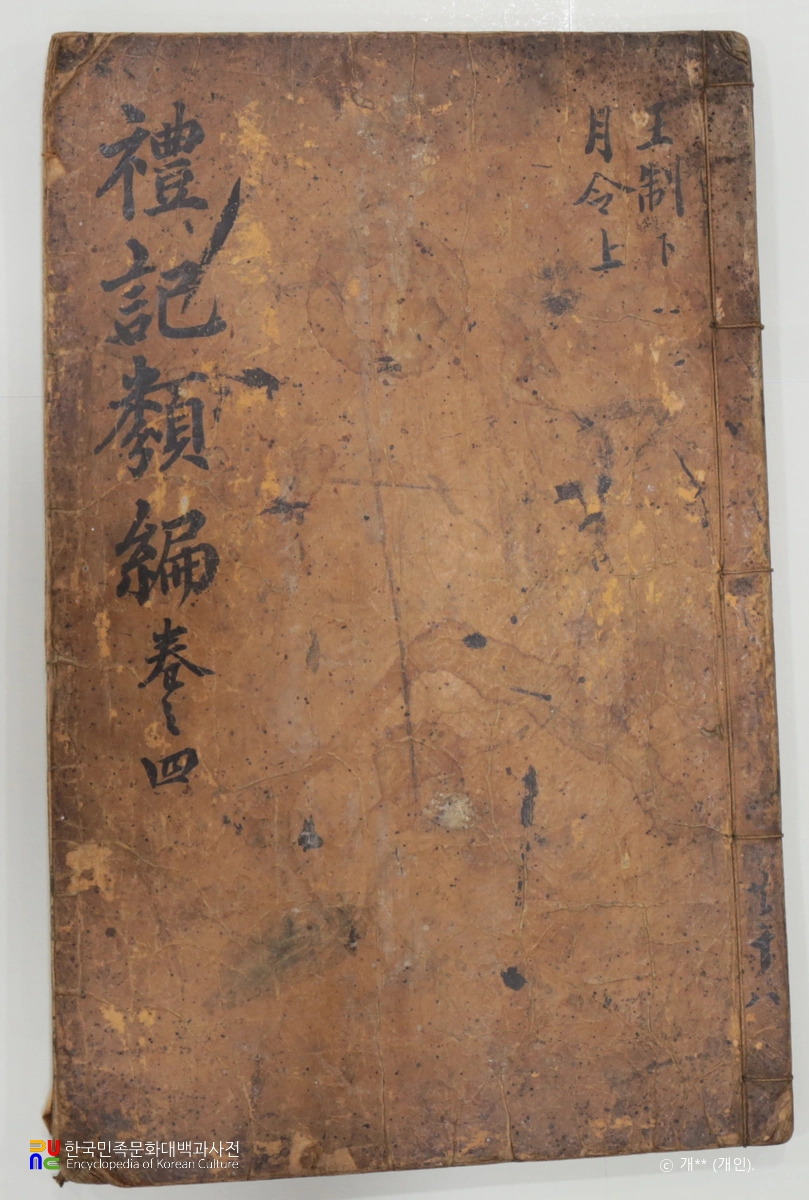 王制下
月令上
禮記類編卷之四
共十八
한국민족문화대백과사전
Encyclopedia of Korean Culture
© 개** (개인).